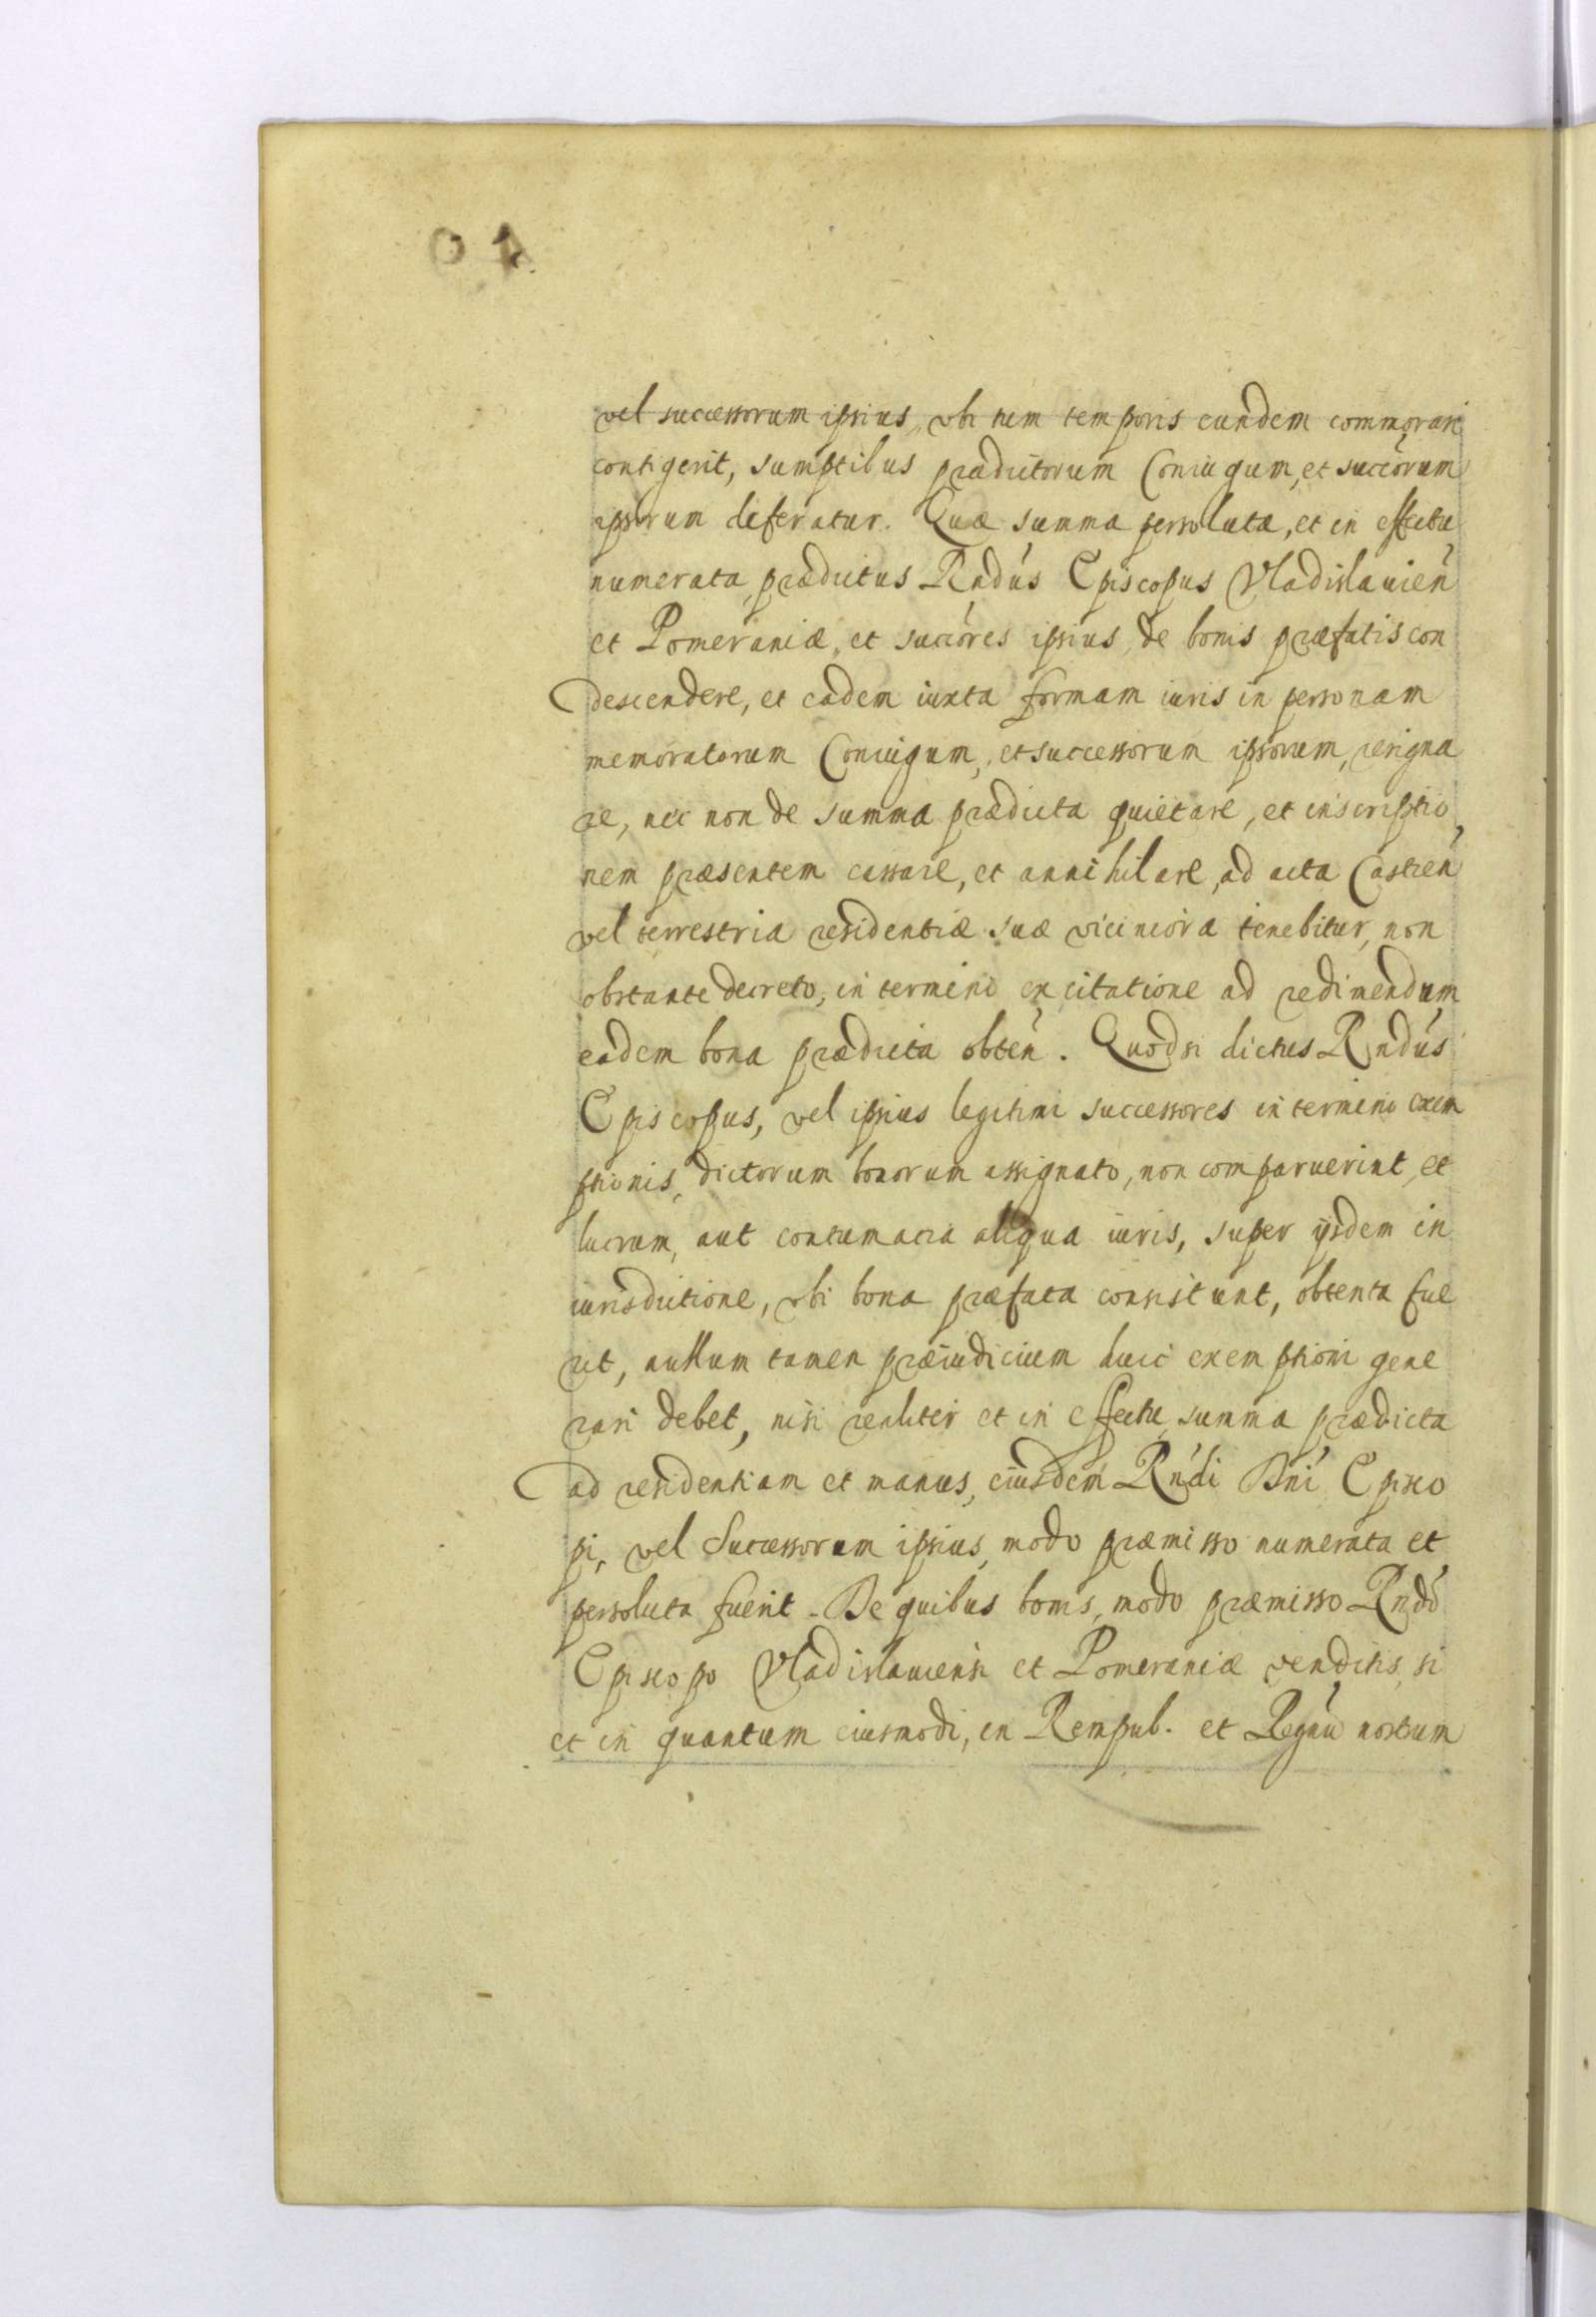 vel successorum ipsius, vbi tum temporis eundem commorari
contigerit, sumptibus prædictorum Coniugum, et succórum
ipsorum deferatur. Quæ summa persoluta, et in effectu
numerata, prædictus Rndús Episcopus Vladislauień
et Pomeraniæ, et succóres ipsius, de bonis præfatis con
descendere, et eadem iuxta formam iuris in personam
memoratorum Coniugum, et successorum ipsorum, resigna
re, nec non de summa prædicta quietare, et inscriptio
nem præsentem cassare, et annihilare, ad acta Castreń
vel terrestria residentiæ suæ viciniora tenebitur, non
obstante decreto, in termino ex citatione ad redimendum
eadem bona prædicta obteń. Quodsi dictus Rndús
Episcopus, vel ipsius legitimi successores in termino exem
ptionis, dictorum bonorum assignato, non comparuerint, et
lucrum, aut contumacia aliqua iuris, super ijsdem in
iurisdictione, vbi bona præfata consistunt, obtenta fue
rit, nullum tamen præiudicium huic exemptioni gene
rari debet, nisi realiter et in effectu, summa prædicta
ad residentiam et manus, eiusdem Rńdi Dní Episco
pi, vel Successorum ipsius, modo præmisso numerata et
persoluta fuerit. De quibus bonis, modo præmisso Rndó
Episcopo Vladislauiensi et Pomeraniæ venditis, si
et in quantum eiusmodi, in Rempub. et Regnú nostrum